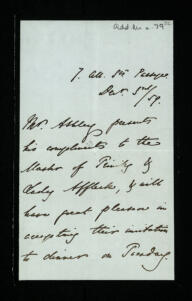 Add. Ms. a. 79
7. Alb. St. Passage
Dec. 3rd/59.
Mr. Ashley presents
his compliments to the
Master of Trinity &
Lady Affleck, & will
have great pleasure in
accepting their invitation
to dinner on Tuesday